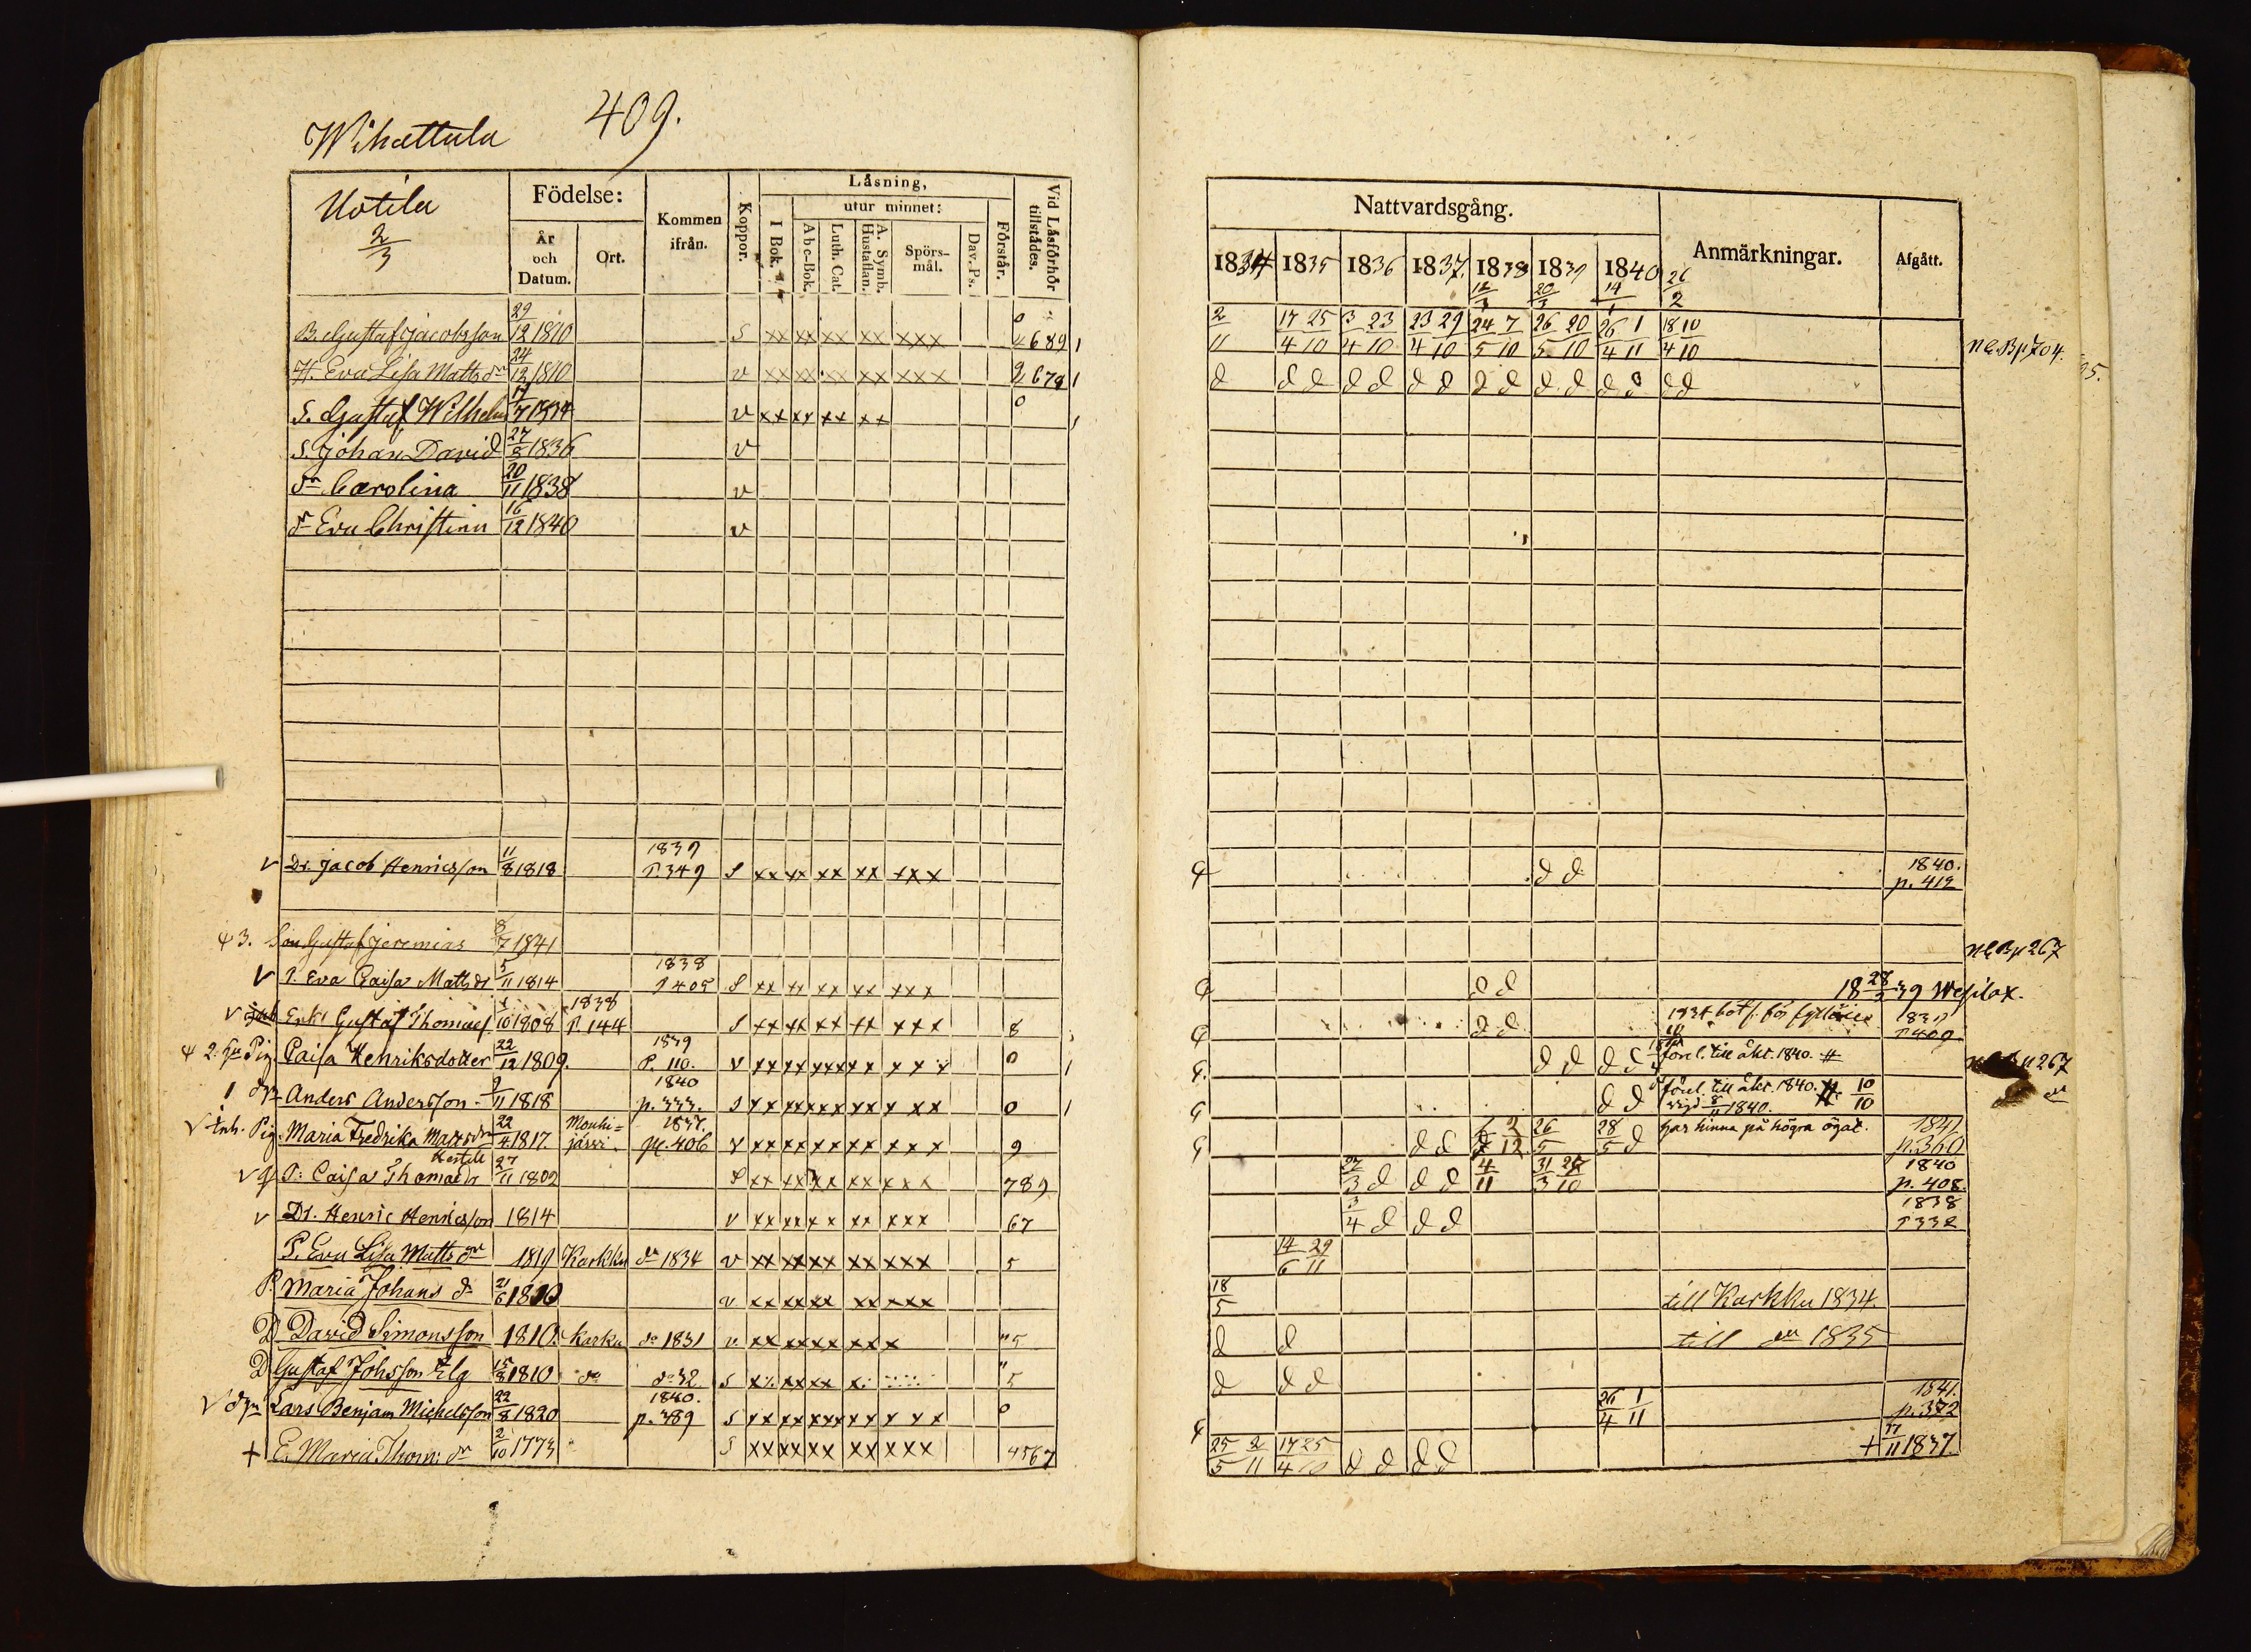 Wihattula 409.
Uotila
2/3
Födelse:
År och Datum.
Ort.
Kommen ifrån.
Koppor.
Läsning,
I Bok.
utur minnet:
Abc-Bok.
Luth. Cat.
A. Symb. Hustaflan.
Spörs-mål.
Dav. Ps.
Förstår.
Vid Läsförhör tillstådes.
B. Gustaf Jacobsson 29/12 1810 S xx xx xx xx xxx 4689 1
H. Eva Lisa Matts dr 24/12 1810 v xx xx xx xx xxx 2678 1
S. Gustaf Wilhelm 17/7 1834 v xx xx xx xx 0
S. Johan David 27/8 1836 v
dr Carolina 20/11 1838 v
dr Eva Christina 16/12 1840 v
v Dr. Jacob Henricsson 11/8 1818 1839 P. 349 S xx xx xx xx xxx
3. Son Gustaf Jeremias 8/7 1841
v P. Eva Caisa Matts dr 5/11 1814 1838 P 405 S xx xx xx xx xxx
v Enk: Gustaf Thomaes. 10 1808 1838 P. 144 S xx xx xx xx xxx 8
2. Pig. Caisa Henriksdotter 22/12 1809. 1839 P. 110. v xx xx xx xx xxx 0 1
1 Anders Andersson 9/11 1818 1840 p. 333. S xx xx xx xx xxx 0 1
v Inh. Pig. Maria Fredrika Matts dr 22/4 1817 Mouhi=järvi. 1837. p. 406 v xx xx xx xx xxx 9
v P: Caisa Thomae dr 27/11 1809 S xx xx xx xx xxx 789
v Dr. Henric Henricsson 1814 v xx xx xx xx xxx 67
P. Eva Lisa Matts dr 1819 Karkku do 1834 v xx xx xx xx xxx 5
P. Maria Johans dr 21/6 1810 v xx xx xx xx xxx
D David Simonsson 1810. Karku do 1831 v. xx xx xx xx xx "5
D Gustaf Johsson Elg 15/8 1810 do do 32 S "5
v Lars Benjam Michelsson 22/8 1820 1840. p. 389 S xx xx xx xx xxx 0
+ E. Maria Thom: dr 2/10 1773 S xx xx xx xx xxx 4567
Nattvardsgång.
Anmärkningar.
Afgått.
1834 1835 1836 1837. 1838 1839 1840
20/3 14/1 26/2
2/11 17/4 25/10 3/4 23/10 23/4 29/10 24/5 7/10 26/5 20/10 26/4 1/11 18/4 10/10
d d d d d d d d d d d d d d d
d d 1840. p. 412
d d 18 28/3 39 Wesilax.
d d 1834 bötf. för fylleri P 409
d d d d förel. till äkt. 1840. #
d d förel. till äkt. 1840. # 10/10
vigd 8/11 1840.
d d 2/12 26/5 28/5 d har hinna på högra ögat. 1841 p. 360
27/3 d d d 4/11 31/3 10 1840 p. 408.
3/4 d d d 1838 P 332
14/6 29/11
18/5 till Karkku 1834.
d d till do 1835
d d d
26/4 1/11 1841. p. 372
25/5 2/11 17/4 25/10 d d d d + 17/11 1837.